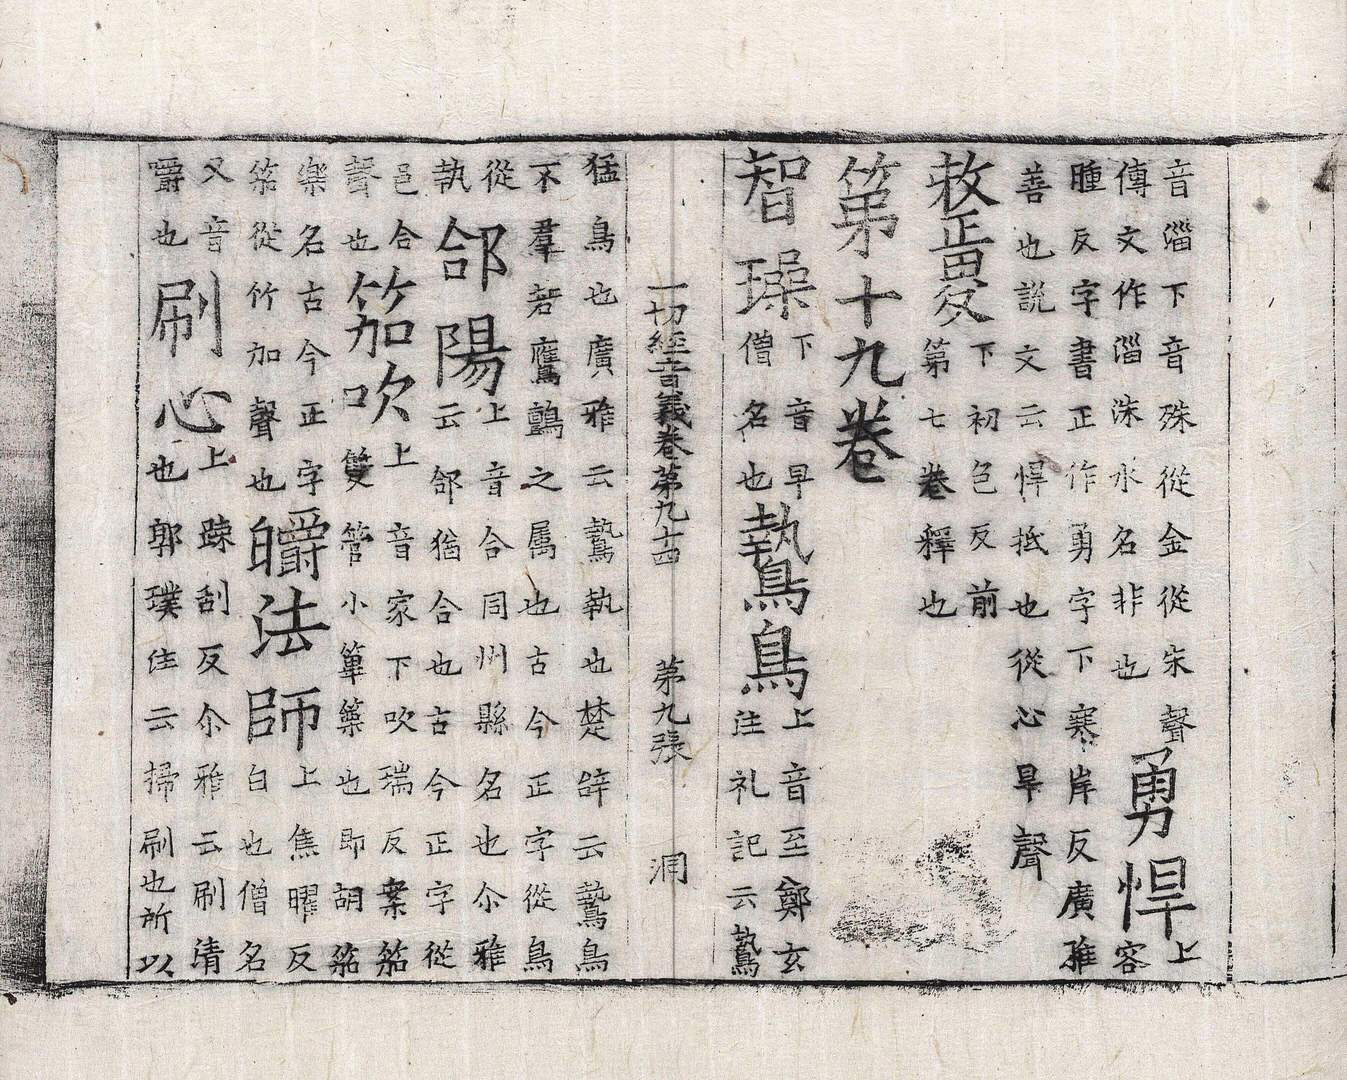 音淄下音殊從金從朱聲
傳文作淄洙水名非也
勇悍
上
容
腫反字書正作勇字下寒岸反廣雅
善也說文云悍抵也從心旱聲
下初色反前
第七卷釋也
第十九卷
智璪
下音早
僧名也
鷙鳥
上音至鄭玄
注礼記云鷙
一切經音義卷第九十四 第九張 洞
猛鳥也廣雅云鷙執也楚辞云鷙鳥
不羣若鷹鸇之属也古今正字從鳥
從
執
郃陽
上音合同州縣名也尒雅
云郃猶合也古今正字從
邑合
聲也
笳吹
上音家下吹瑞反案笳
雙管小篳篥也即胡笳
樂名古今正字
笳從竹加聲也
皭法師
上焦曜反
白也僧名
又音
嚼也
刷心
上踈刮反尒雅云刷清
也郭璞注云掃刷也所以